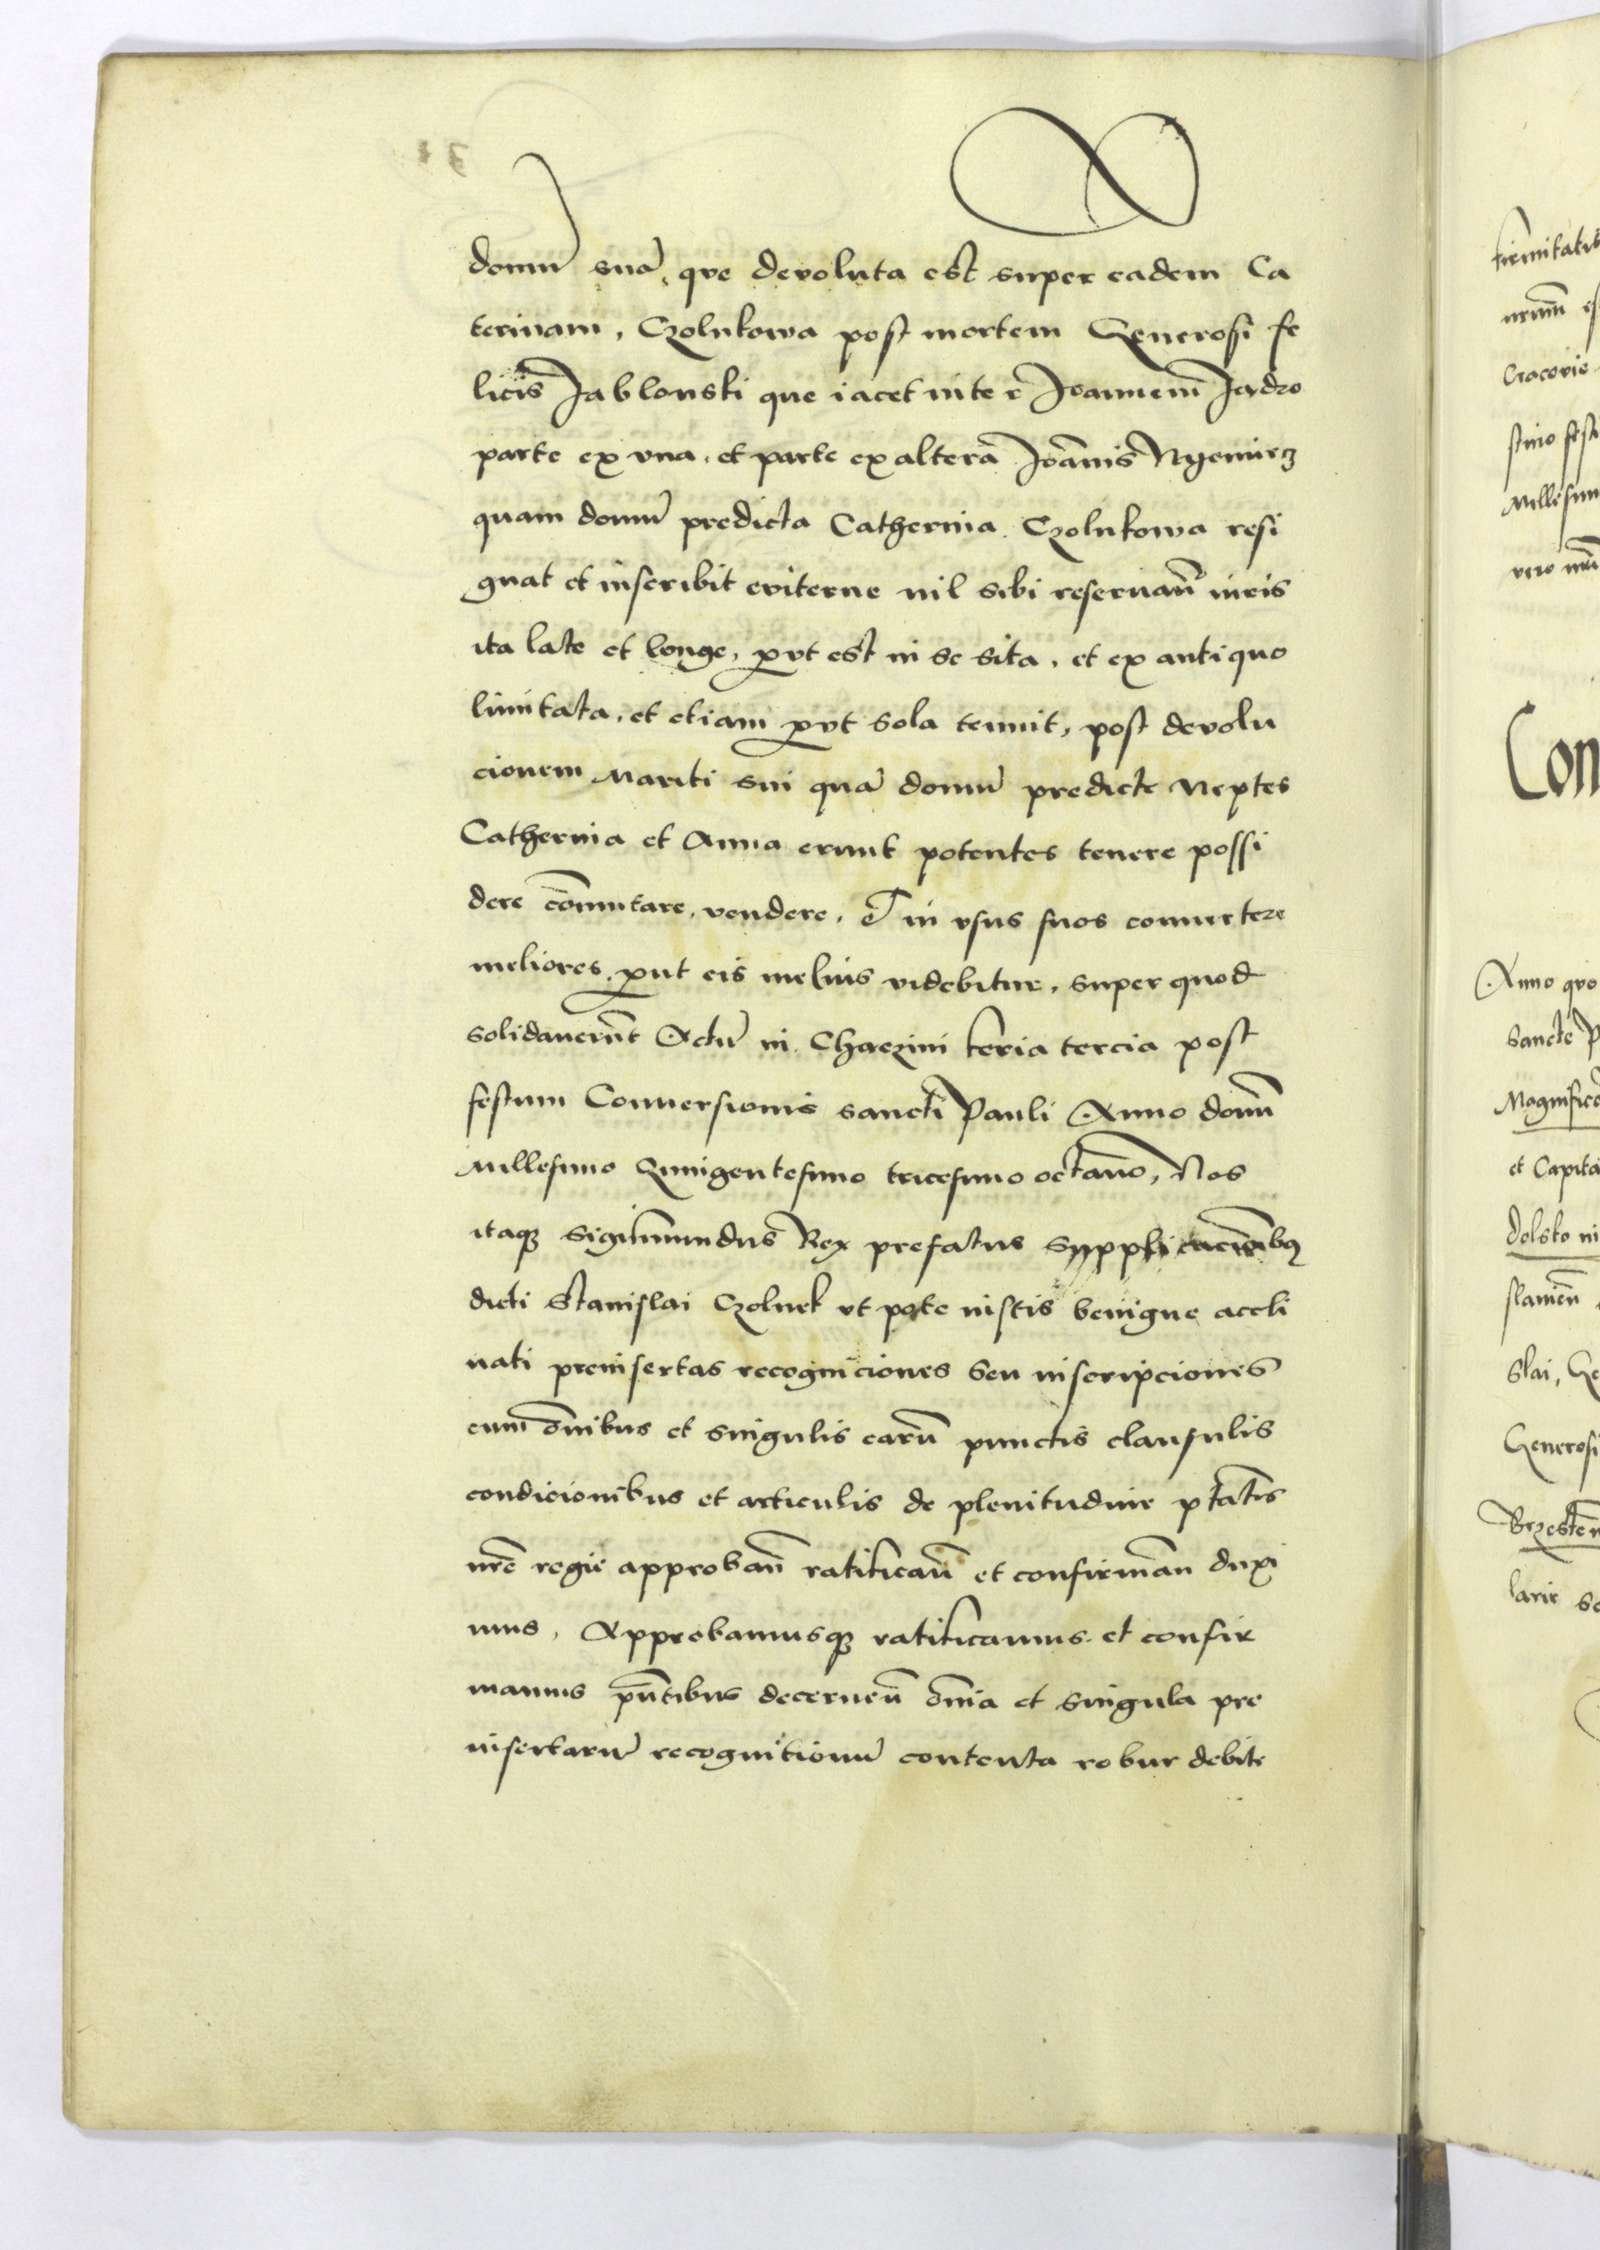 domū suā, que devoluta est super eadem Ca
terinam, Czolnkowa post mortem Generosi fe
licis Jablonski que iacet inter Joannem Jadro
parte ex vna, et parte ex altera Joānis Nyemiecz
quam domū predicta Catherina Czolnkowa resi
gnat et inscribit eviterne nil sibi reseruan̄ iuris
ita late et longe, put est in se sita, et ex antiquo
limitata, et etiam put sola tenuit, post devolu
cionem Mariti sui quā domū predicte Neptes
Catherina et Anna erunt potentes tenere possi
dere cōmutare, vendere, et in vsus suos conuertere
meliores, put eis melius videbitur, super quod
solidauerūt Actū in Chaczini feria tercia post
festum Conuersionis sancti Pauli Anno domī
Millesimo Quingentesimo tricesimo octauo, Nos
itaq Sigismundus Rex prefatus Supplicacionibꝫ
dicti Stanislai Czolnek vt pote iustis benigne accli
nati preinsertas recogniciones seu inscripciones
cum oībus et singulis earū punctis clausulis
condicionibus et articulis de plenitudine ptatis
nrē regie approban̄ ratifican̄ et confirman̄ duxi
mus, Approbamusq ratificamus et confir
mamus pn̄tibus decernen̄ oīa et singula pre
insertarū recognitionū contenta robur debite
firmitatis
Cracovie
Con
Anno quo
Sancte P
Magnifico
et Capita
slai, Ge
Generosi